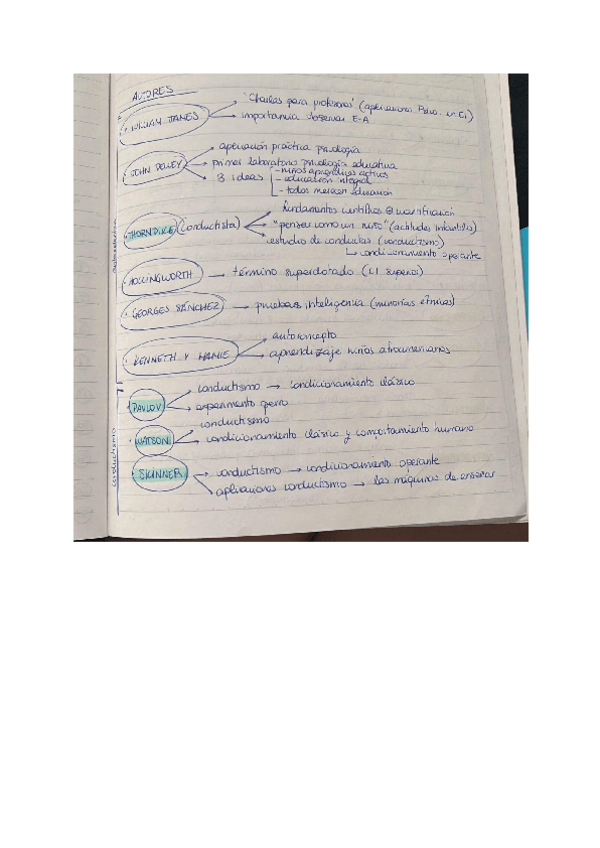 AUTORES
· WILLIAM JAMES
"Charlas para profesores" (aplicaciones Psico. en E.)
importancia observar E-A
· JOHN DEWEY
aplicación práctica psicología
primer laboratorio psicología educativa
3 ideas
- niños aprendices activos
- educación integral
- todos merecen educación
· THORNDIKE (Conductista)
fundamentos científicos @ cuantificación
"pensar como un niño" (actitudes infantiles)
estudio de conductas (conductismo)
condicionamiento operante
· HOLLINGWORTH → término superdotado (CI superior)
· GEORGES SÁNCHEZ → pruebas inteligencia (minorías étnicas)
· KENNETH Y MAMIE
autoconcepto
aprendizaje niños afroamericanos
conductismo
· PAVLOV
conductismo → condicionamiento clásico
experimento perro
· WATSON
conductismo
condicionamiento clásico y comportamiento humano
· SKINNER
conductismo → condicionamiento operante
aplicaciones conductismo → las máquinas de enseñar